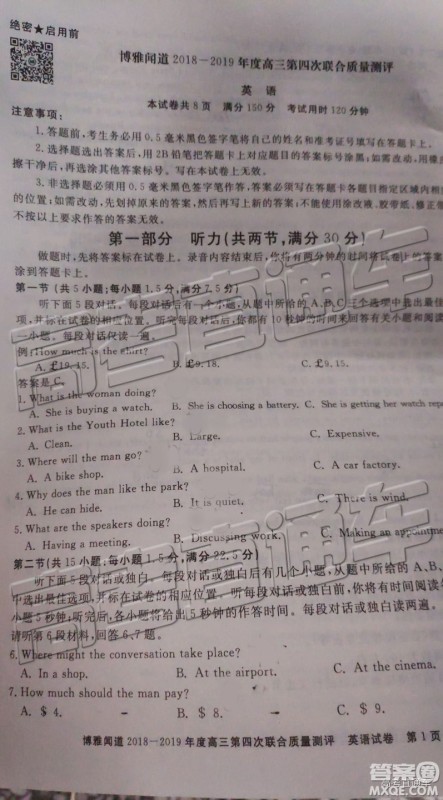 绝密★启用前
博雅闻道2018—2019年度高三第四次联合质量测评
英语
本试卷共8页 满分150分 考试用时120分钟
注意事项：
1.答题前，考生务必用0.5毫米黑色签字笔将自己的姓名和准考证号填写在答题卡上。
2.选择题选出答案后，用2B铅笔把答题卡上对应题目的答案标号涂黑；如需改动，用橡皮
擦干净后，再选涂其他答案标号。写在本试卷上无效。
3.非选择题必须用0.5毫米黑色签字笔将答案写在答题卡各题目指定区域内相
的位置；如需改动，先划掉原来的答案，然后再写上新答案；不能使用涂改液、胶带纸、修正
不按以上要求作答的答案无效。
第一部分 听力（共两节，满分30分）
做题时，先将答案标在试卷上。录音内容结束后，你将有两分钟的时间将试卷上的答案
涂到答题卡上。
第一节（共5小题；每小题1.5分，满分7.5分）
听下面5段对话。每段对话后有一个小题，从题中所给的A、B、C三个选项中选出最佳选
项，并标在试卷的相应位置。听完每段对话后，你都有10秒钟的时间来回答有关小题和阅读
一小题。每段对话仅读一遍。
例：How much is the shirt?
A. £19.15. B. £9.18. C. £9.15.
答案是C。
1. What is the woman doing?
A. She is buying a watch. B. She is choosing a battery. C. She is getting her watch repa
2. What is the Youth Hotel like?
A. Clean. B. Large. C. Expensive.
3. Where will the man go?
A. A bike shop. B. A hospital. C. A car factory.
4. Why does the man like the park?
A. He can hide. B. It is quiet. C. There is wind.
5. What are the speakers doing?
A. Having a meeting. B. Discussing work. C. Making an appointme
第二节（共15小题；每小题1.5分，满分22.5分）
听下面5段对话或独白。每段对话或独白后有几个小题，从题中所给的A、B、
中选出最佳选项，并标在试卷的相应位置。听每段对话或独白前，你将有时间阅读
小题5秒钟；听完后，各小题将给出5秒钟的作答时间。每段对话或独白读两遍。
请听第6段材料，回答6、7题。
6. Where might the conversation take place?
A. In a shop. B. At the airport. C. At the cinema.
7. How much should the man pay?
A. $ 4. B. $ 8. C. $ 9.
博雅闻道2018—2019年度高三第四次联合质量测评 英语试卷 第1页
高考直通车
高考直通车
答案圈
MXQE.COM